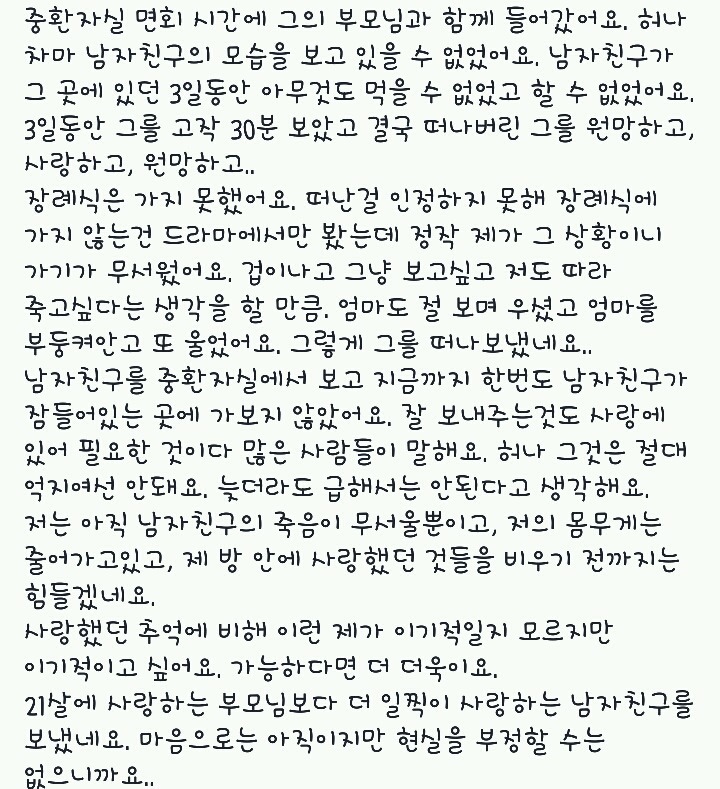 중환자실 면회 시간에 그의 부모님과 함께 들어갔어요. 허나
차마 남자친구의 모습을 보고 있을 수 없었어요. 남자친구가
그 곳에 있던 3일동안 아무것도 먹을 수 없었고 할 수 없었어요.
3일동안 그를 고작 30분 보았고 결국 떠나버린 그를 원망하고,
사랑하고, 원망하고..
장례식은 가지 못했어요. 떠난걸 인정하지 못해 장례식에
가지 않는건 드라마에서만 봤는데 정작 제가 그 상황이니
가기가 무서웠어요. 겁이나고 그냥 보고싶고 저도 따라
죽고싶다는 생각을 할 만큼. 엄마도 절 보며 우셨고 엄마를
부둥켜안고 또 울었어요. 그렇게 그를 떠나보냈네요..
남자친구를 중환자실에서 보고 지금까지 한번도 남자친구가
잠들어있는 곳에 가보지 않았어요. 잘 보내주는것도 사랑에
있어 필요한 것이다 많은 사람들이 말해요. 허나 그것은 절대
억지여선 안돼요. 늦더라도 급해서는 안된다고 생각해요.
저는 아직 남자친구의 죽음이 무서울뿐이고, 저의 몸무게는
줄어가고있고, 제 방 안에 사랑했던 것들을 비우기 전까지는
힘들겠네요.
사랑했던 추억에 비해 이런 제가 이기적일지 모르지만
이기적이고 싶어요. 가능하다면 더 더욱이요.
21살에 사랑하는 부모님보다 더 일찍이 사랑하는 남자친구를
보냈네요. 마음으로는 아직이지만 현실을 부정할 수는
없으니까요..